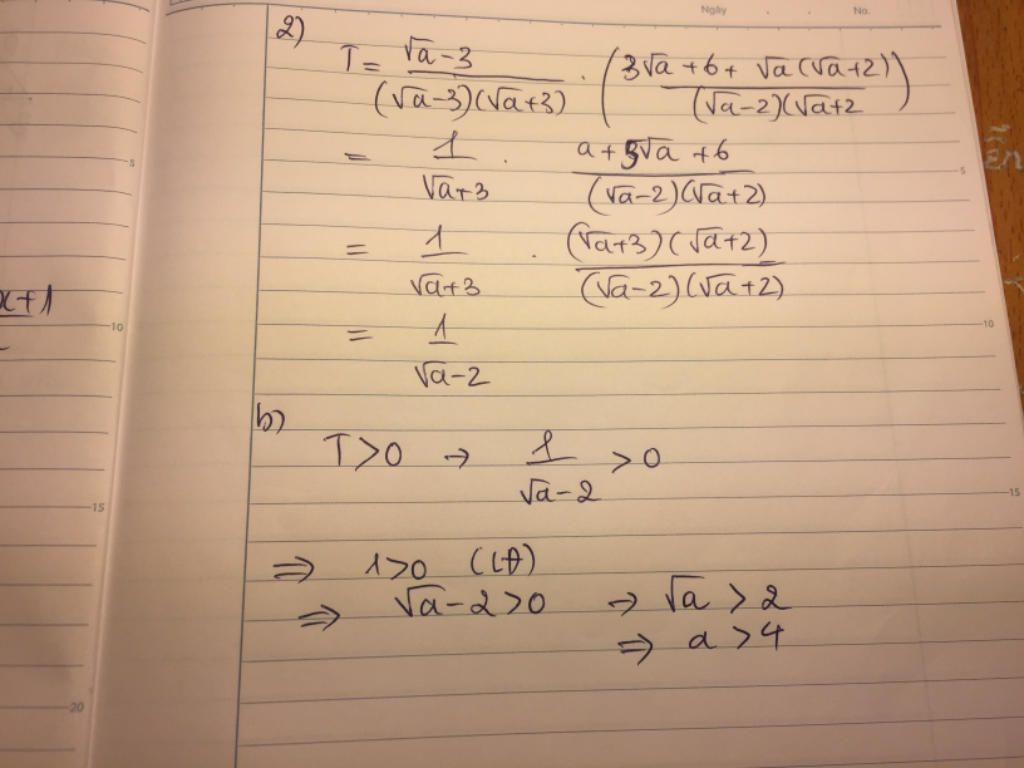 Ngày . . No.
2)
T = √a-3 / (√a-3)(√a+3) . ( 3√a+6+ √a(√a+2) / (√a-2)(√a+2 )
= 1 / √a+3 . a+5√a+6 / (√a-2)(√a+2)
= 1 / √a+3 . (√a+3)(√a+2) / (√a-2)(√a+2)
= 1 / √a-2
b)
T>0 → 1 / √a-2 >0
⇒ 1>0 (LĐ)
⇒ √a-2>0 → √a>2
⇒ a>4
x+1
5
10
15
20
5
10
15